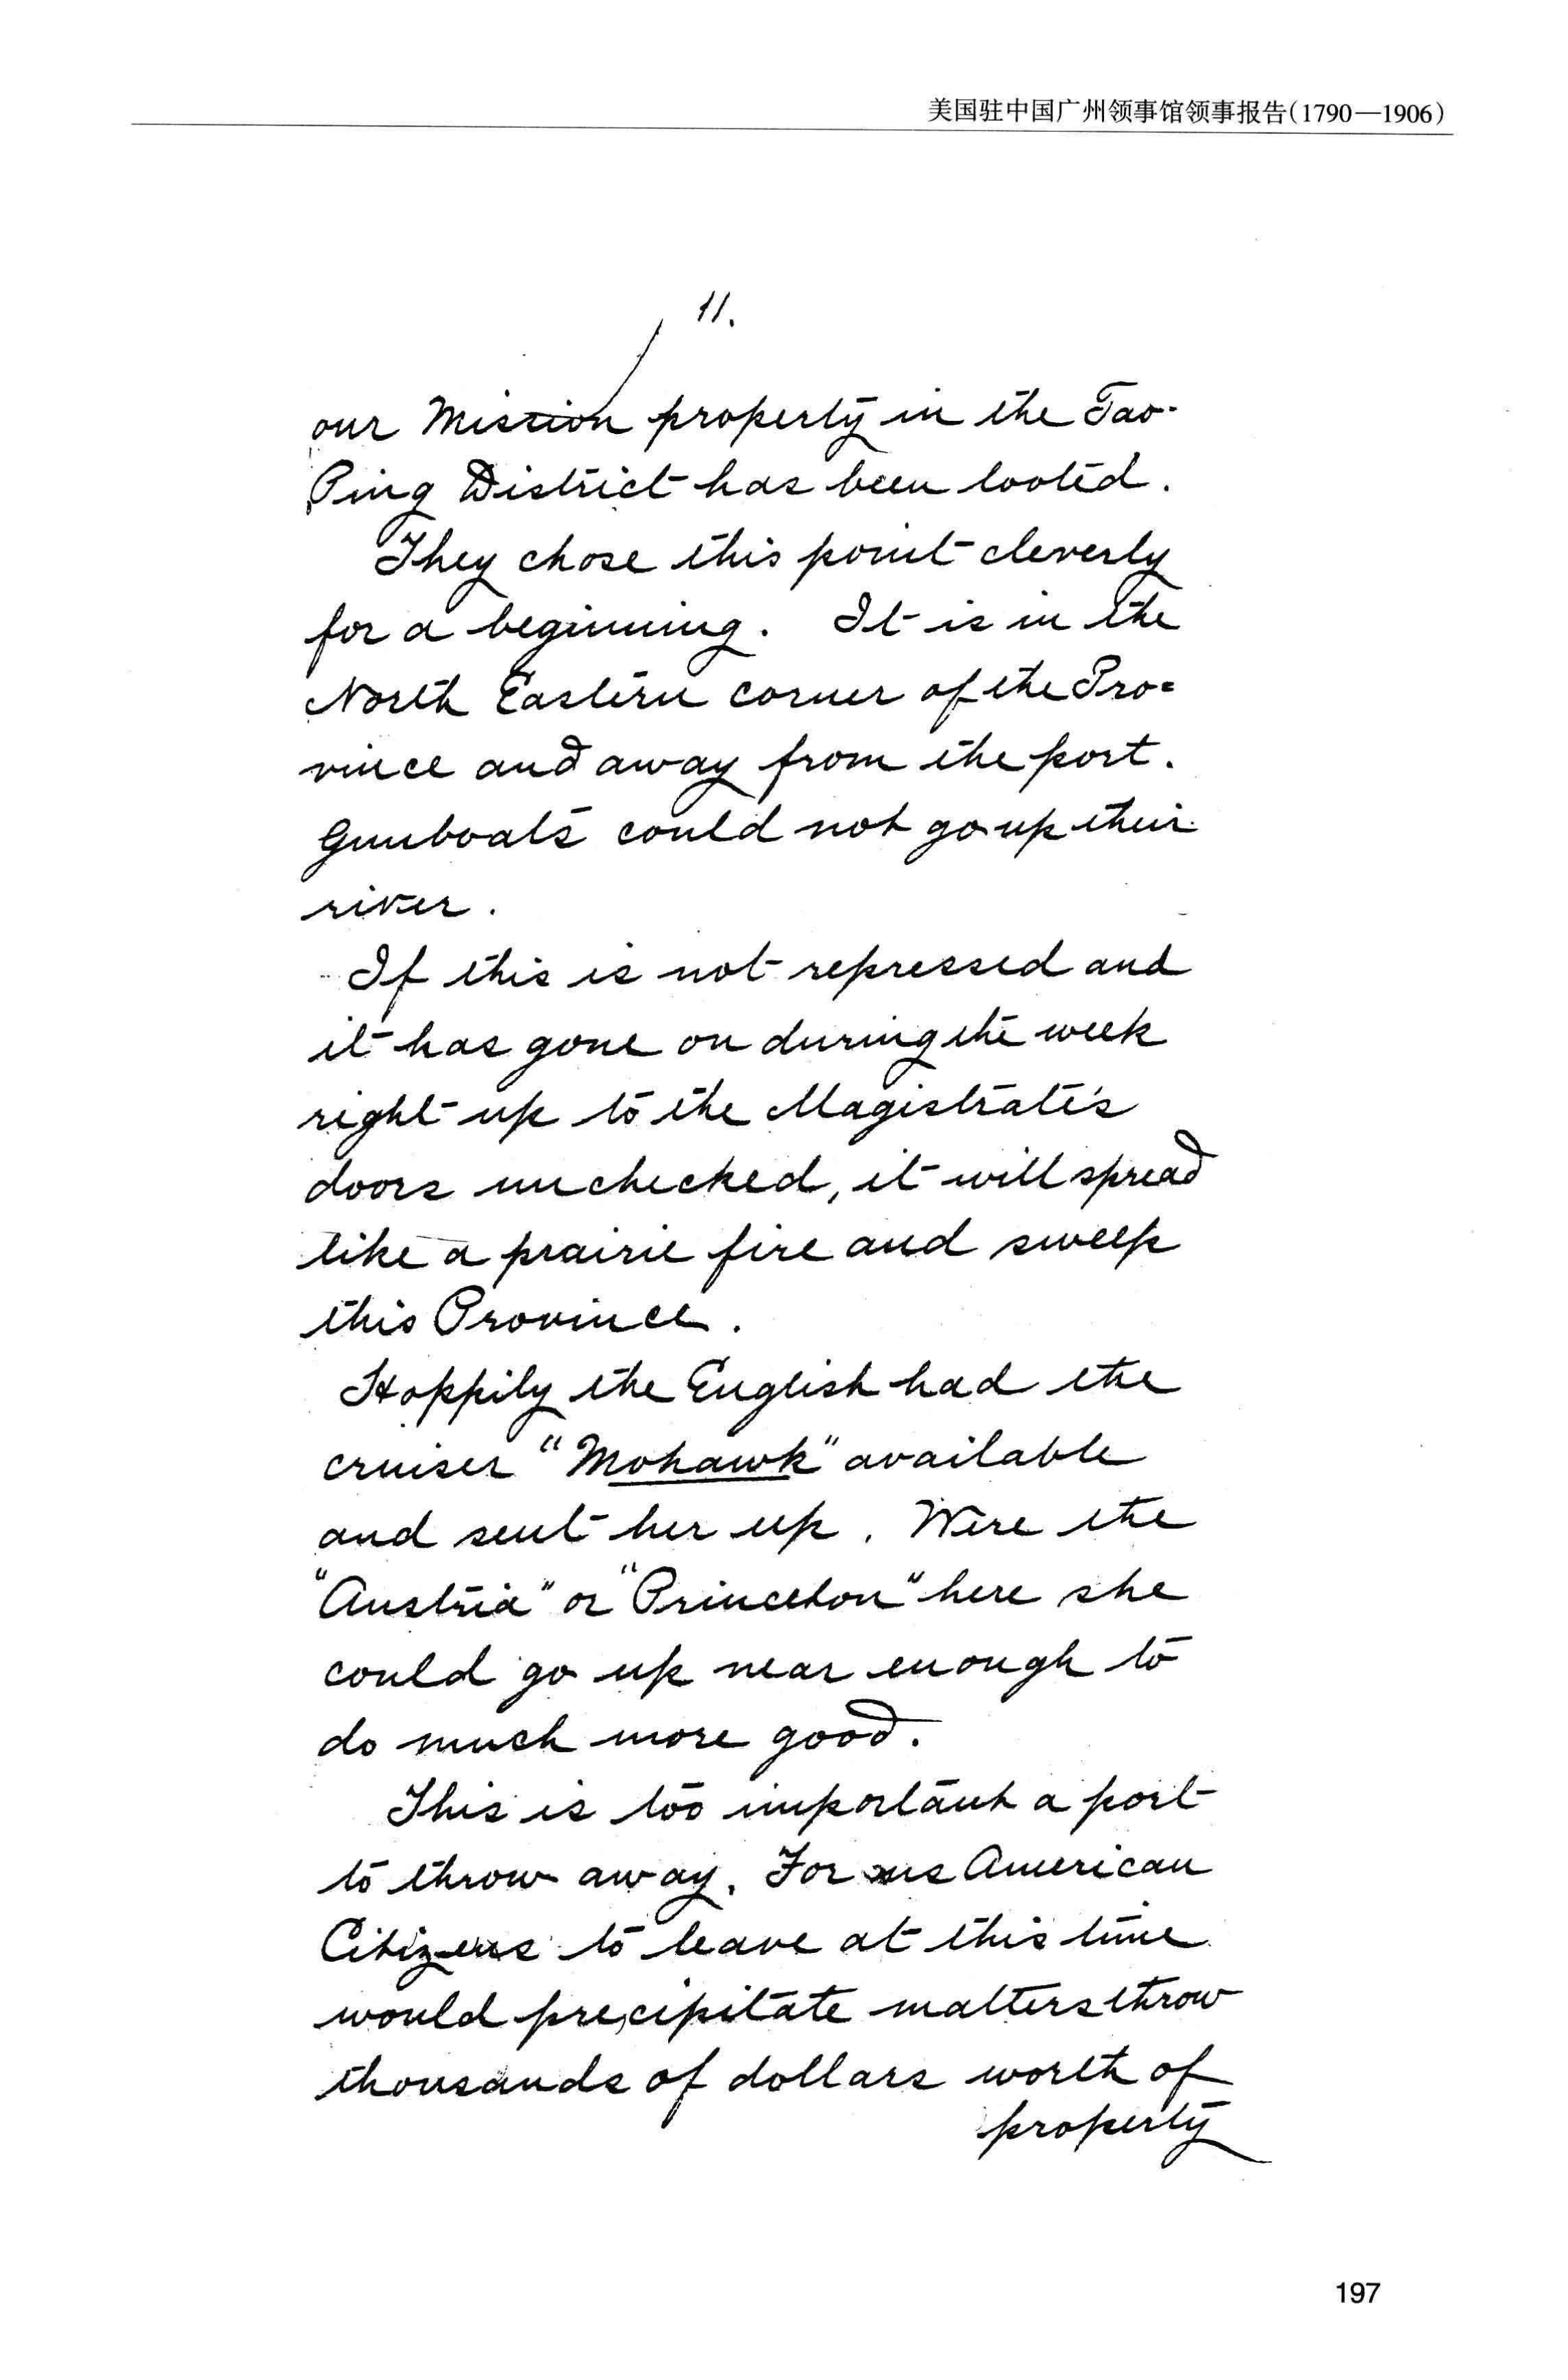 美国驻中国广州领事馆领事报告(1790—1906)
11.
our Mission property in the Tao-
Ping District has been looted.
They chose this point cleverly
for a beginning. It is in the
North Eastern corner of the Pro=
vince and away from the port.
Gunboats could not go up their
river.
If this is not repressed and
it has gone on during the week
right up to the Magistrate's
doors unchecked, it will spread
like a prairie fire and sweep
this Province.
Happily the English had the
cruiser "Mohawk" available
and sent her up. Were the
"Austria" or "Princeton" here she
could go up near enough to
do much more good.
This is too important a port
to throw away. For us American
Citizens to leave at this time
would precipitate matters throw
thousands of dollars worth of
property
197